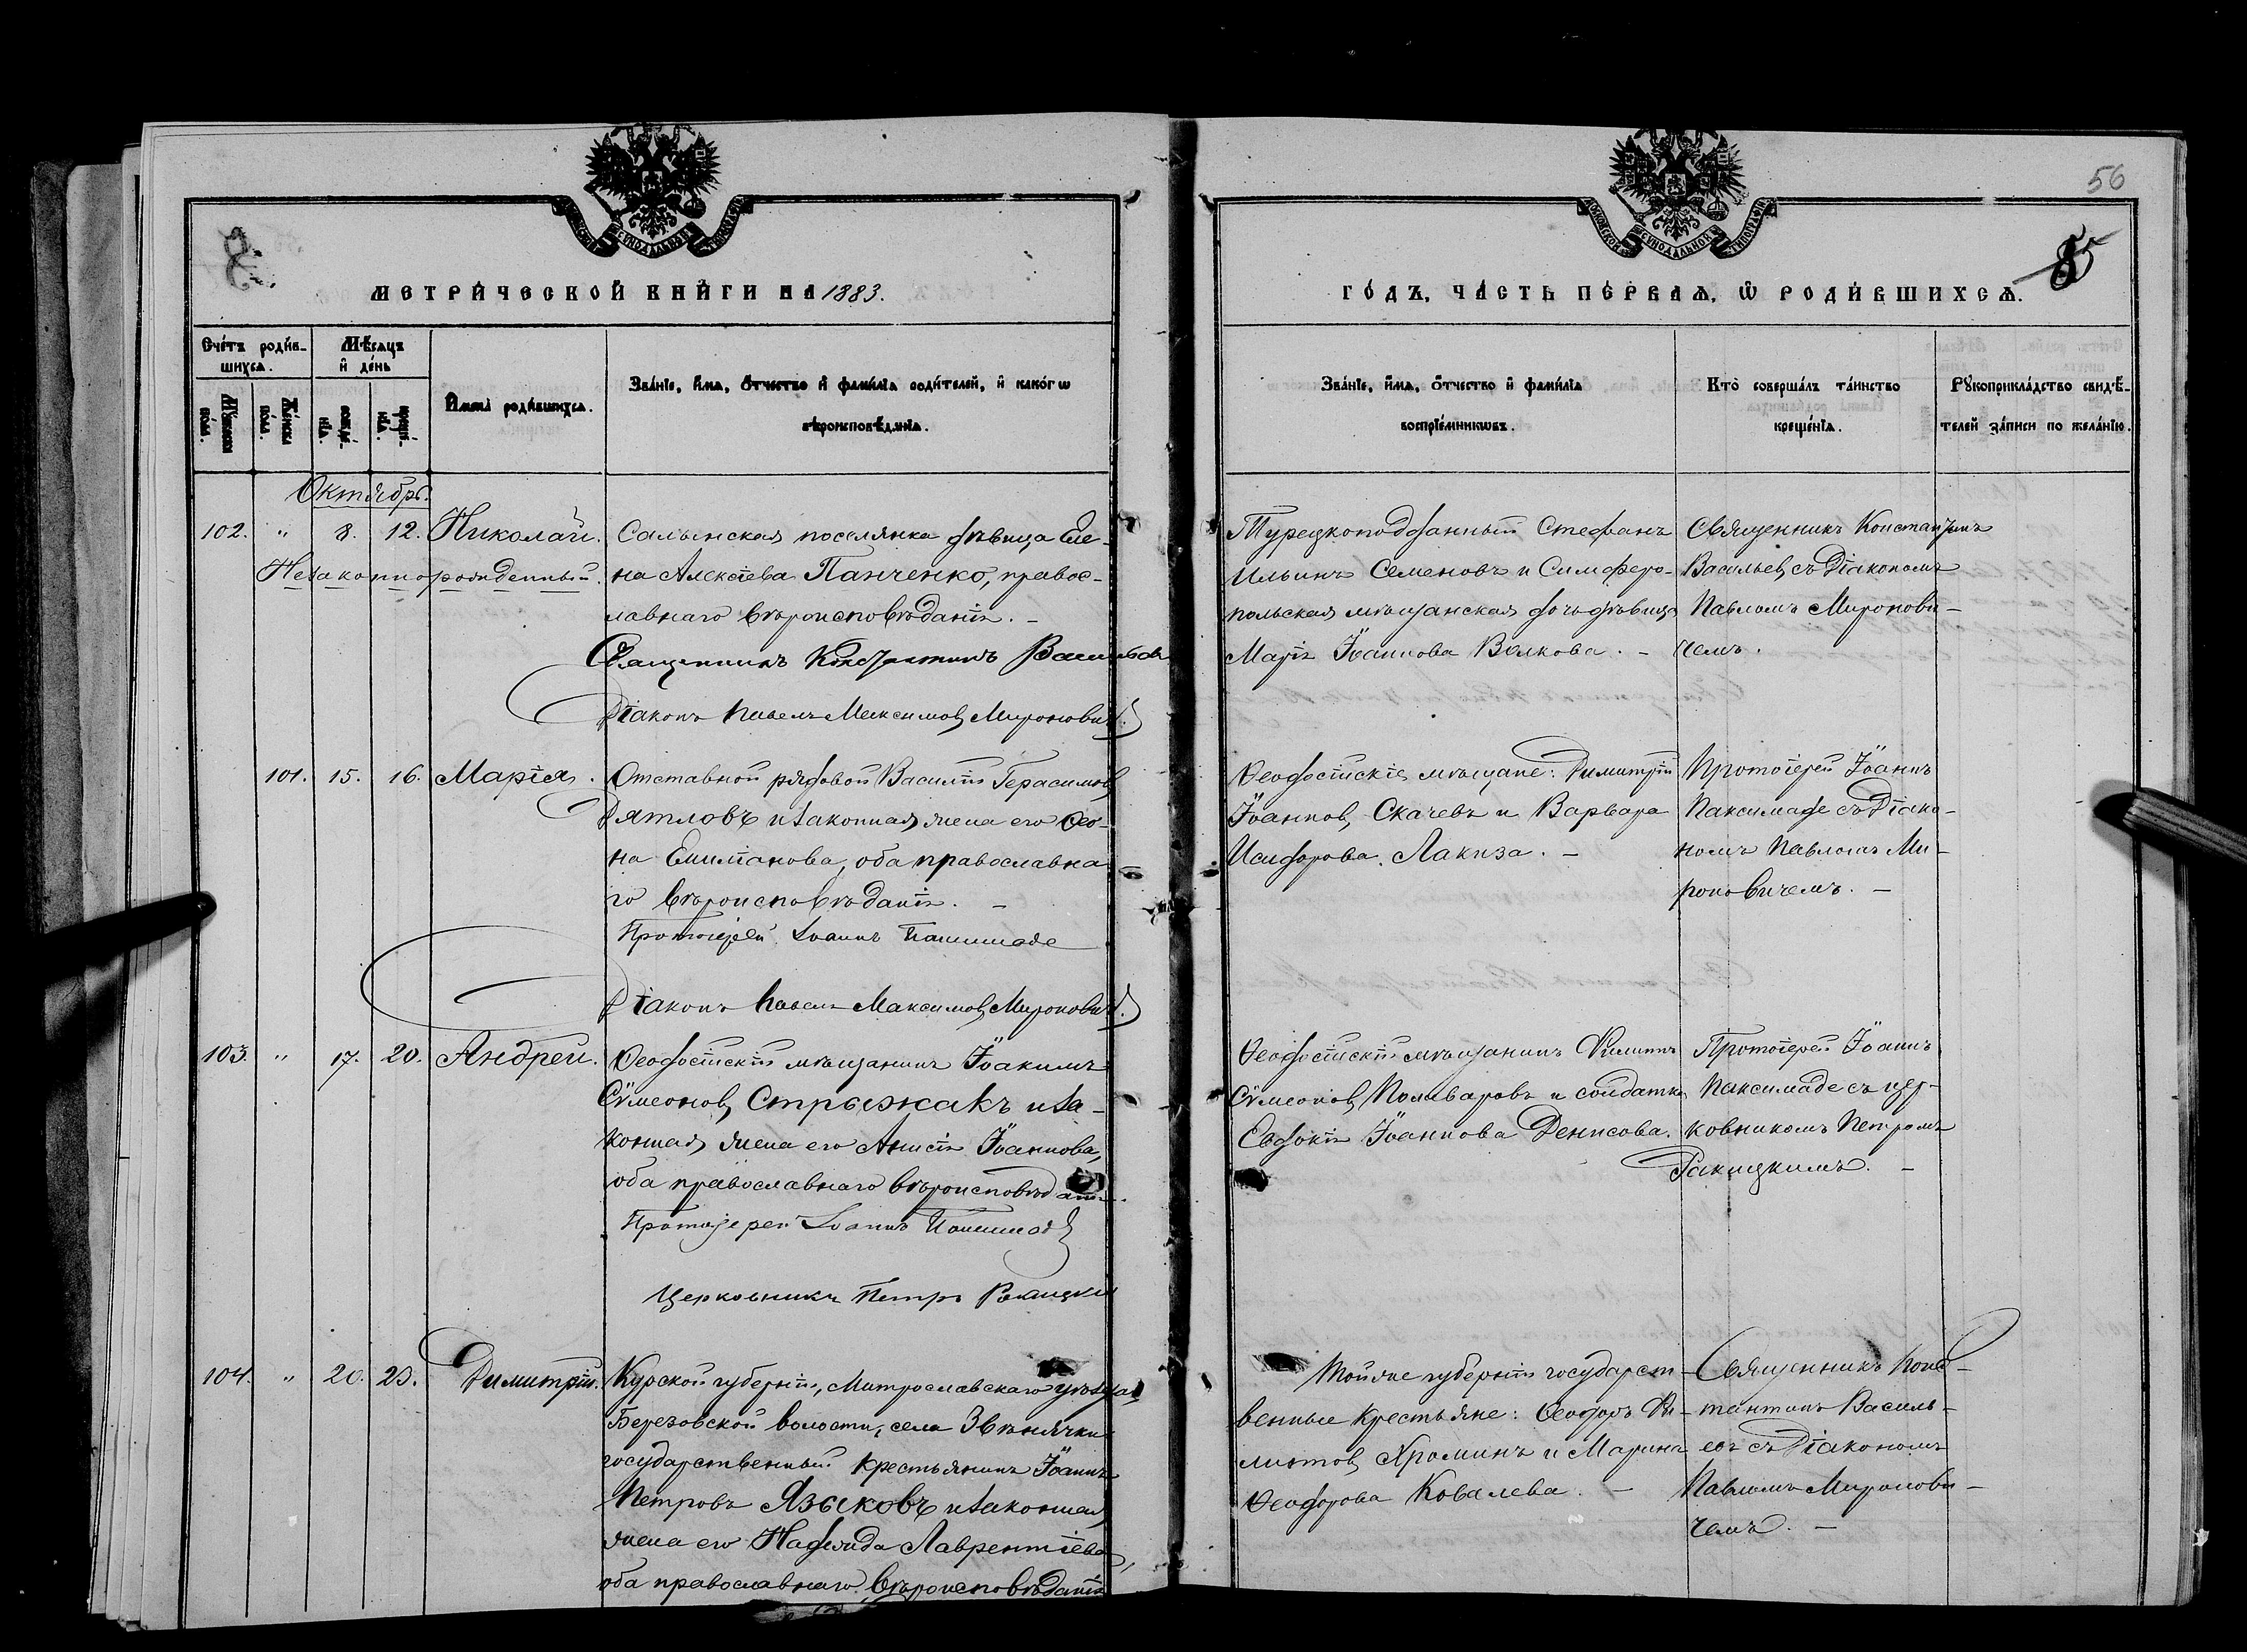 56
85
МОСКОВСКОЙ СѴНОДАЛЬНОЙ ТИПОГРАФІИ
МЕТРИ́ЧЕСКОЙ КНИ́ГИ НА 1883.
ГО́ДЪ, ЧА́СТЬ ПЕ́РВАѦ, Ѡ҆ РОДИ́ВШИХСѦ.
Сче́тъ роди́вшихсѧ.
Мѣ́сѧцъ и҆ де́нь
И҆мена̀ роди́вшихсѧ.
Зва́нїе, и҆́мѧ, ѻ҆́тчество и҆ фами́лїѧ роди́телей, и҆ како́гѡ
вѣроисповѣ́данїѧ.
Зва́нїе, и҆́мѧ, ѻ҆́тчество и҆ фами́лїѧ
воспрїе́мникѡвъ.
Кто̀ соверша́лъ та́инство
креще́нїѧ.
Рꙋкоприкла́дство свидѣ́-
телей за́писи по жела́нїю.
Октябрь.
102. " 8. 12. Николай.
Незаконнорожденный.
Салынская поселянка дѣвица Еле-
на Алексіева Панченко, правос-
лавнаго вѣроисповѣданія. –
Священникъ Константинъ Васильевъ
Діаконъ Павелъ Максимовъ Мироновичъ
Турецкоподданный Стефанъ
Ильинъ Семеновъ и Симферо-
польская мѣщанская дочь дѣвица
Марія Іоаннова Волкова. –
Священникъ Константинъ
Васильевъ съ Діакономъ
Павломъ Миронови-
чемъ.
101. 15. 16. Марія.
Отставной рядовой Василій Герасимовъ
Дятловъ и законная жена его Ѳео-
на Емиліанова, оба православна-
го вѣроисповѣданія. –
Протоіерей Іоаннъ Паксимаде
Діаконъ Павелъ Максимовъ Мироновичъ.
Ѳеодосійскіе мѣщане: Димитрій
Іоанновъ Скачевъ и Варвара
Исидорова Лакиза. –
Протоіерей Іоаннъ
Паксимаде съ Діако-
номъ Павломъ Ми-
роновичемъ. –
103. " 17. 20. Андрей.
Ѳеодосійскій мѣщанинъ Іоакимъ
Сѵмеоновъ Стрыжакъ и за-
конная жена его Анисія Іоаннова,
оба православнаго вѣроисповѣданія.
Протоіерей Іоаннъ Паксимаде
Церковникъ Петръ Ракицкій
Ѳеодосійскій мѣщанинъ Филиппъ
Сѵмеоновъ Поливаровъ и солдатка
Евдокія Іоаннова Денисова.
Протоіерей Іоаннъ
Паксимаде съ цер-
ковникомъ Петромъ
Ракицкимъ. –
104. " 20. 23. Димитрій.
Курской губерніи, Митрославскаго уѣзда,
Березовской волости, села Звѣнячки
государственный крестьянинъ Іоаннъ
Петровъ Языковъ и законная
жена его Надежда Лаврентіева,
оба православнаго вѣроисповѣданія
Той же губерніи государст-
венные крестьяне: Ѳеодоръ Фи-
липповъ Хроминъ и Марина
Ѳеодорова Ковалева. –
Священникъ Конс-
тантинъ Василь-
евъ съ Діакономъ
Павломъ Миронови-
чемъ. –